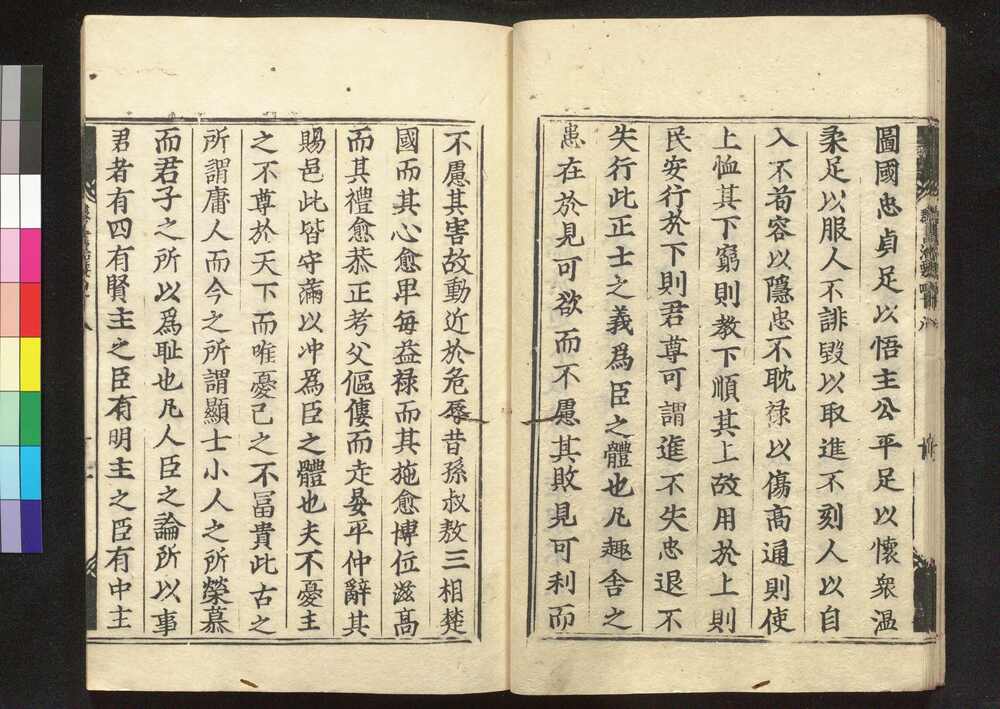 圖國忠貞足以悟主公平足以懷衆溫
柔足以服人不誹毀以取進不刻人以自
入不苟容以隱忠不耽祿以傷高通則使
上恤其下窮則教下順其上故用於上則
民安行於下則君尊可謂進不失忠退不
失行此正士之義爲臣之體也凡趣舍之
患在於見可欲而不慮其敗見可利而
不慮其害故動近於危辱昔孫叔敖三相楚
國而其心愈卑每益祿而其施愈博位滋高
而其禮愈恭正考父傴僂而走晏平仲辭其
賜邑此皆守滿以冲爲臣之體也夫不憂主
之不尊於天下而唯憂己之不冨貴此古之
所謂庸人而今之所謂顯士小人之所榮慕
而君子之所以爲耻也凡人臣之論所以事
君者有四有賢主之臣有明主之臣有中主